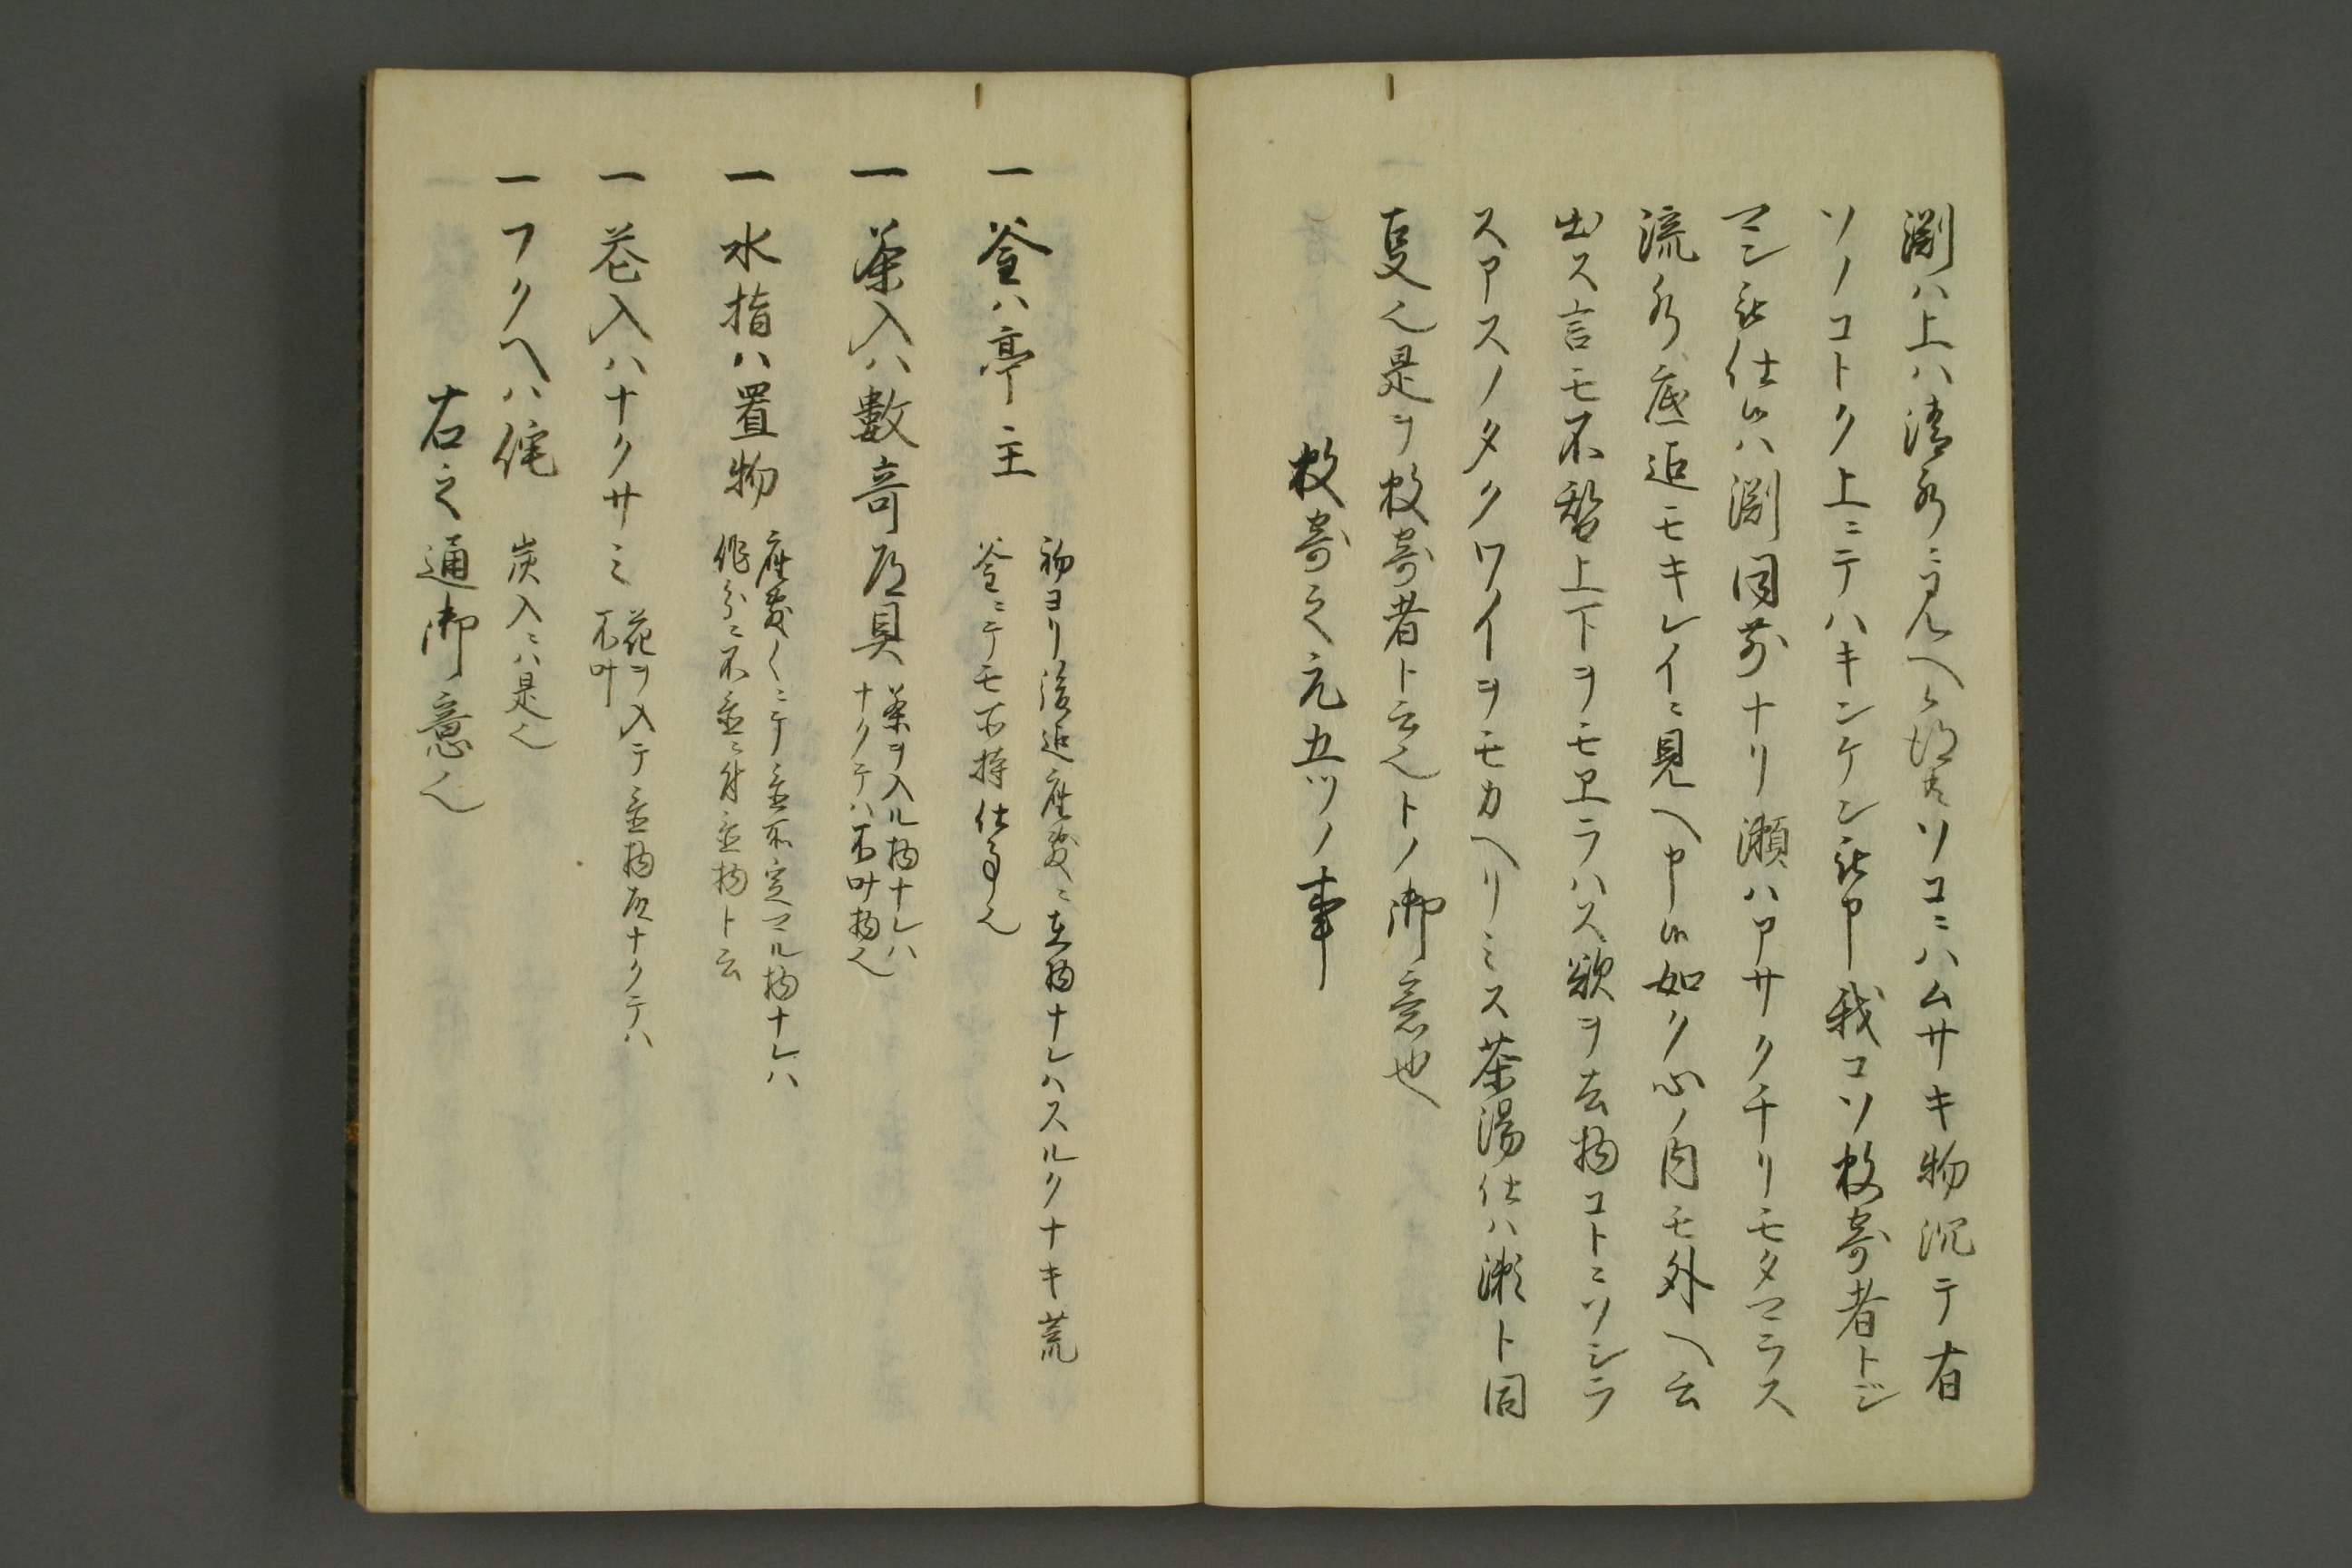 淵ハ上ハ清水ニ見ヘソコニハムサキ物沉テ有
ソノコトク上ニテハキンケン申我コソ数寄者トジ
マン仕ハ淵同前ナリ瀬ハアサクチリモタマラス
流水底迠モキレイニ見ヘ申如ク心ノ内モ外ヘ云
出ス言モ不暫上下ヲモヱラハス欲ヲ去物コトニソシラ
スアスノタクワイヲモカヘリミス茶湯仕ハ瀬ト同
夏也是ヲ数寄者ト云也トノ御意也
数寄之元五ツノ事
一 釜ハ亭主
初ヨリ後迠座敷ニ在物ナレハスルクナキ荒
釜ニテモ不持仕事也
一 茶入ハ數奇道具
茶ヲ入ル物ナレハ
ナクテハ不叶物也
一 水指ハ置物
座敷〱ニテ置所定マル物ナレハ
作分ニ不置ニ付置物ト云
一 花入ハナクサミ
花ヲ入テ置物故ナクテハ
不叶
一 フクヘハ侘
炭入ニハ是也
右之通御意也